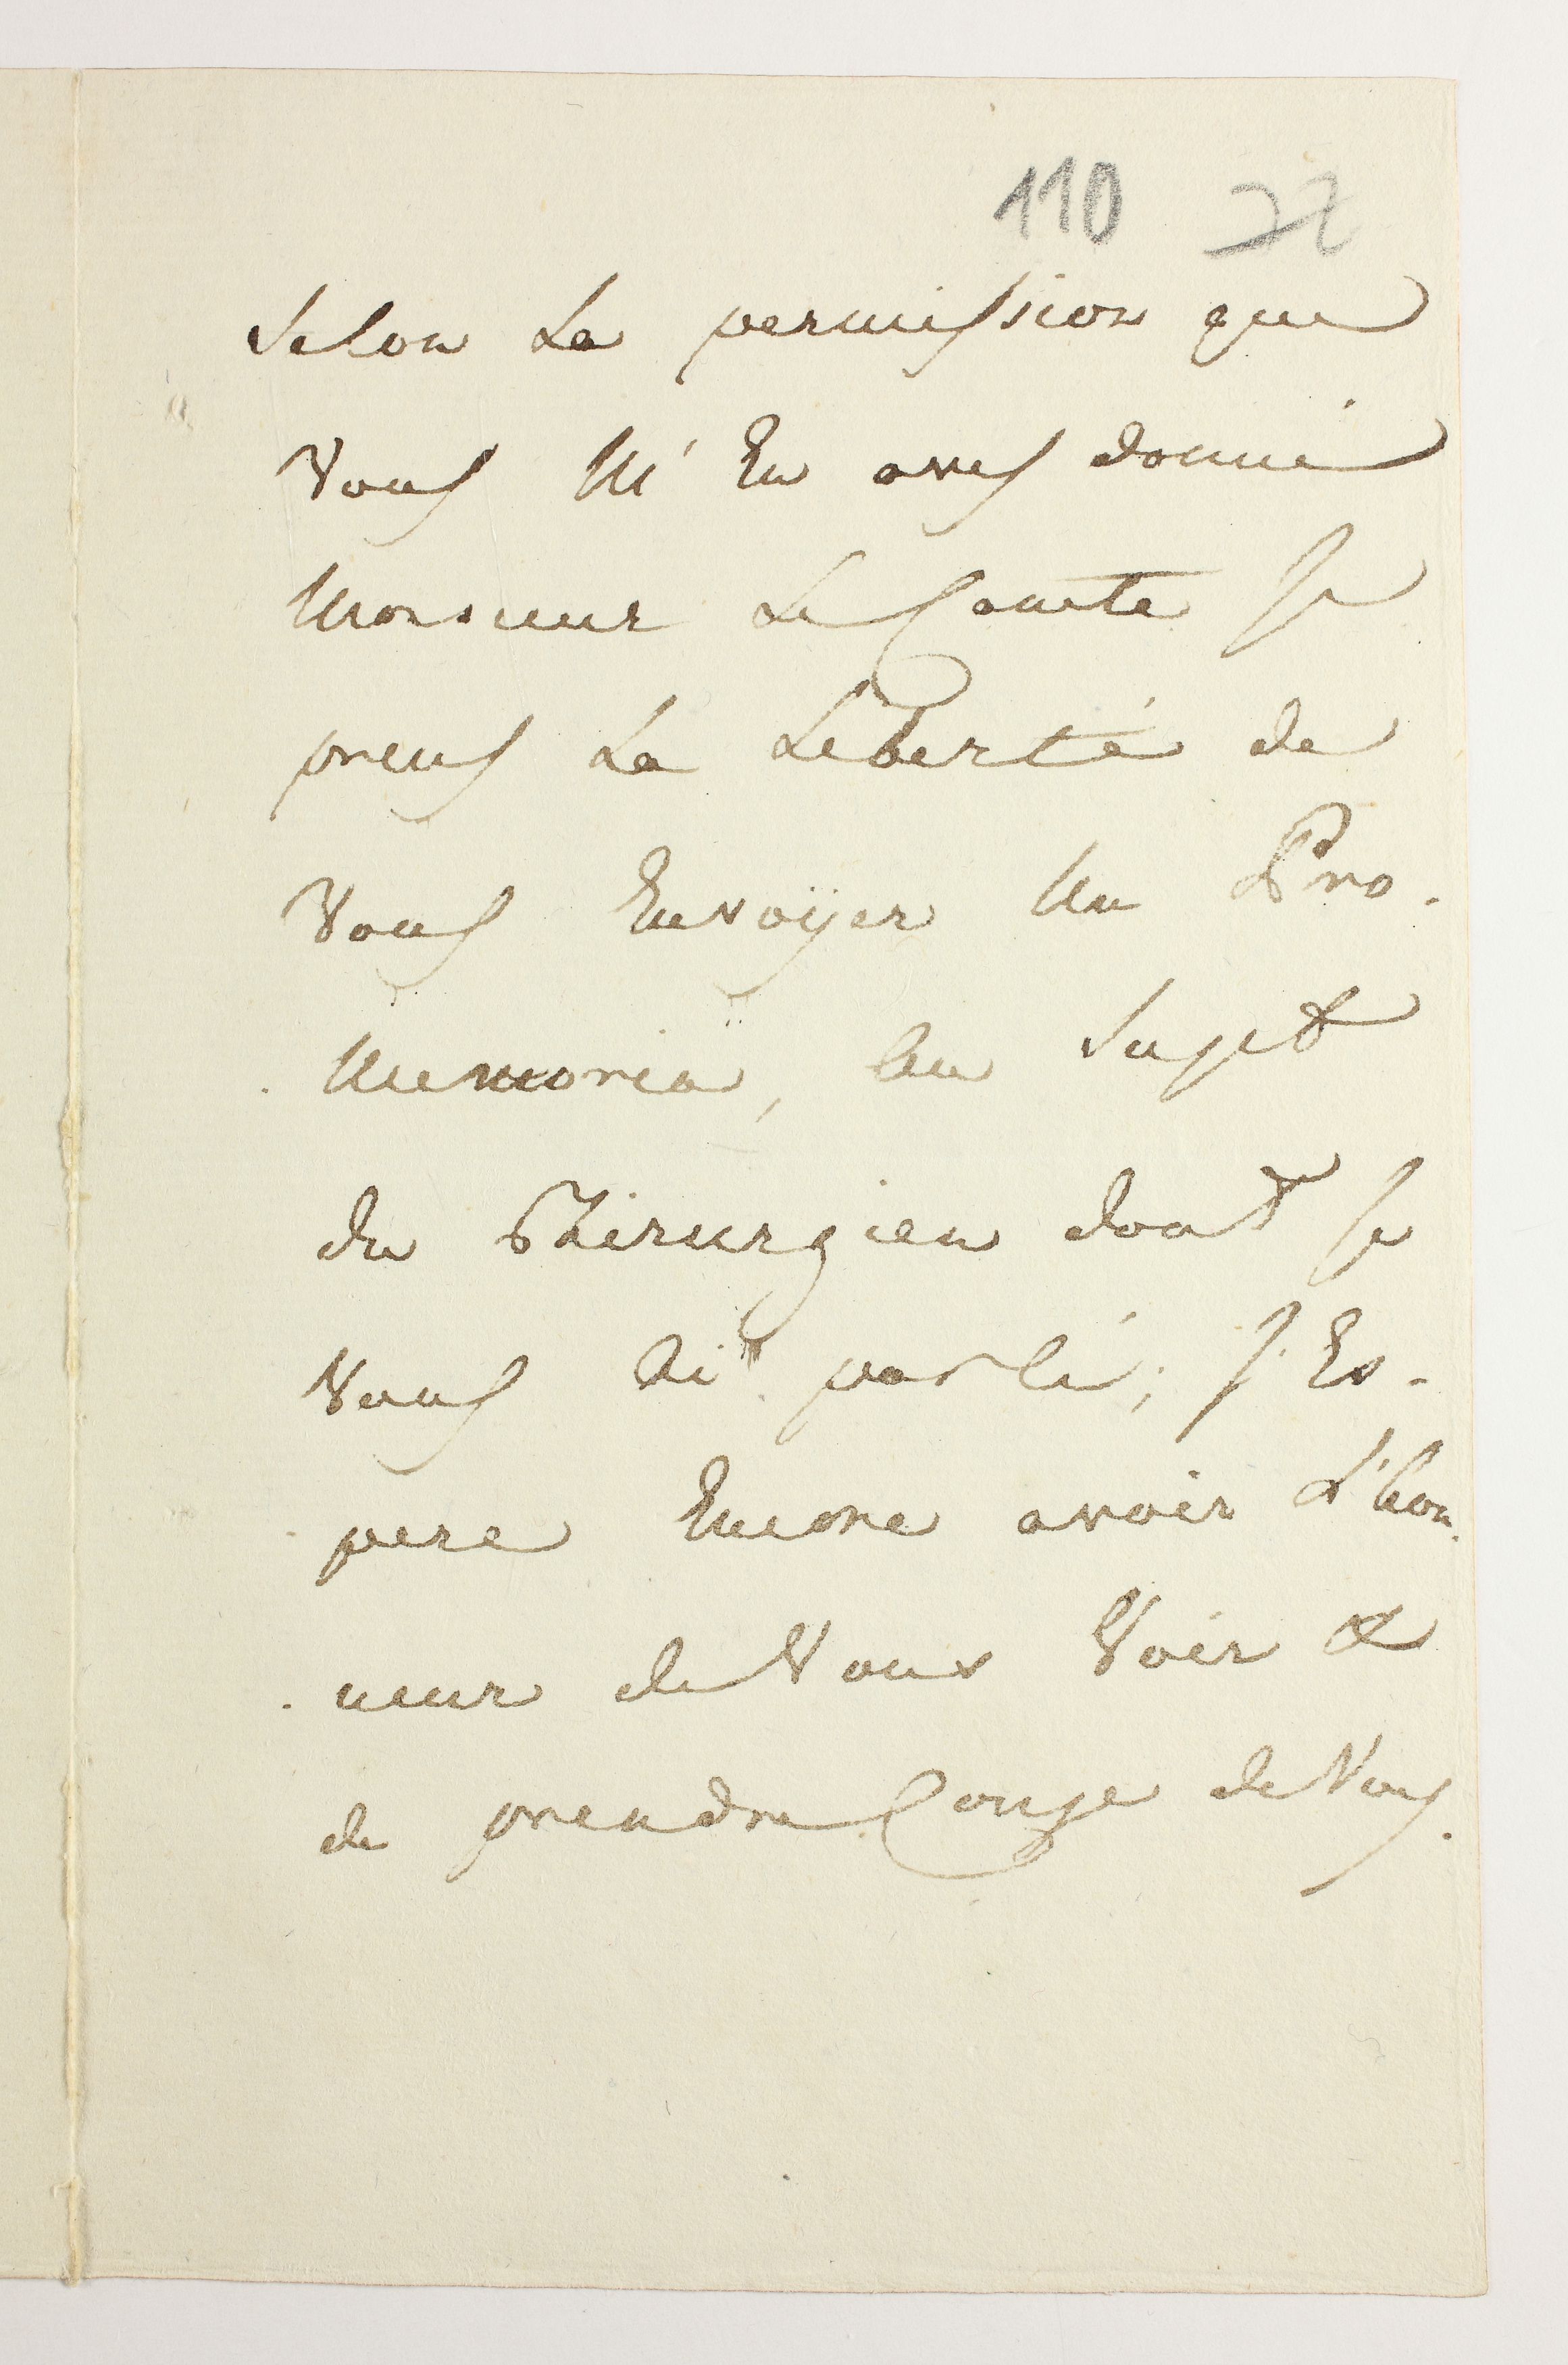 110 22
Selon La permission que
Vous M'En aves donné
Monsieur Le Comte Je
prens La Liberté de
Vous Envoÿer Un Pro-
-Memoria, Au Sujet
du Chirurgien dont Je
Vous Ai parlé; J'Es-
-pere Encore avoir L'hon-
-neur de Vous Voir &
de prendre Conge de Vous.